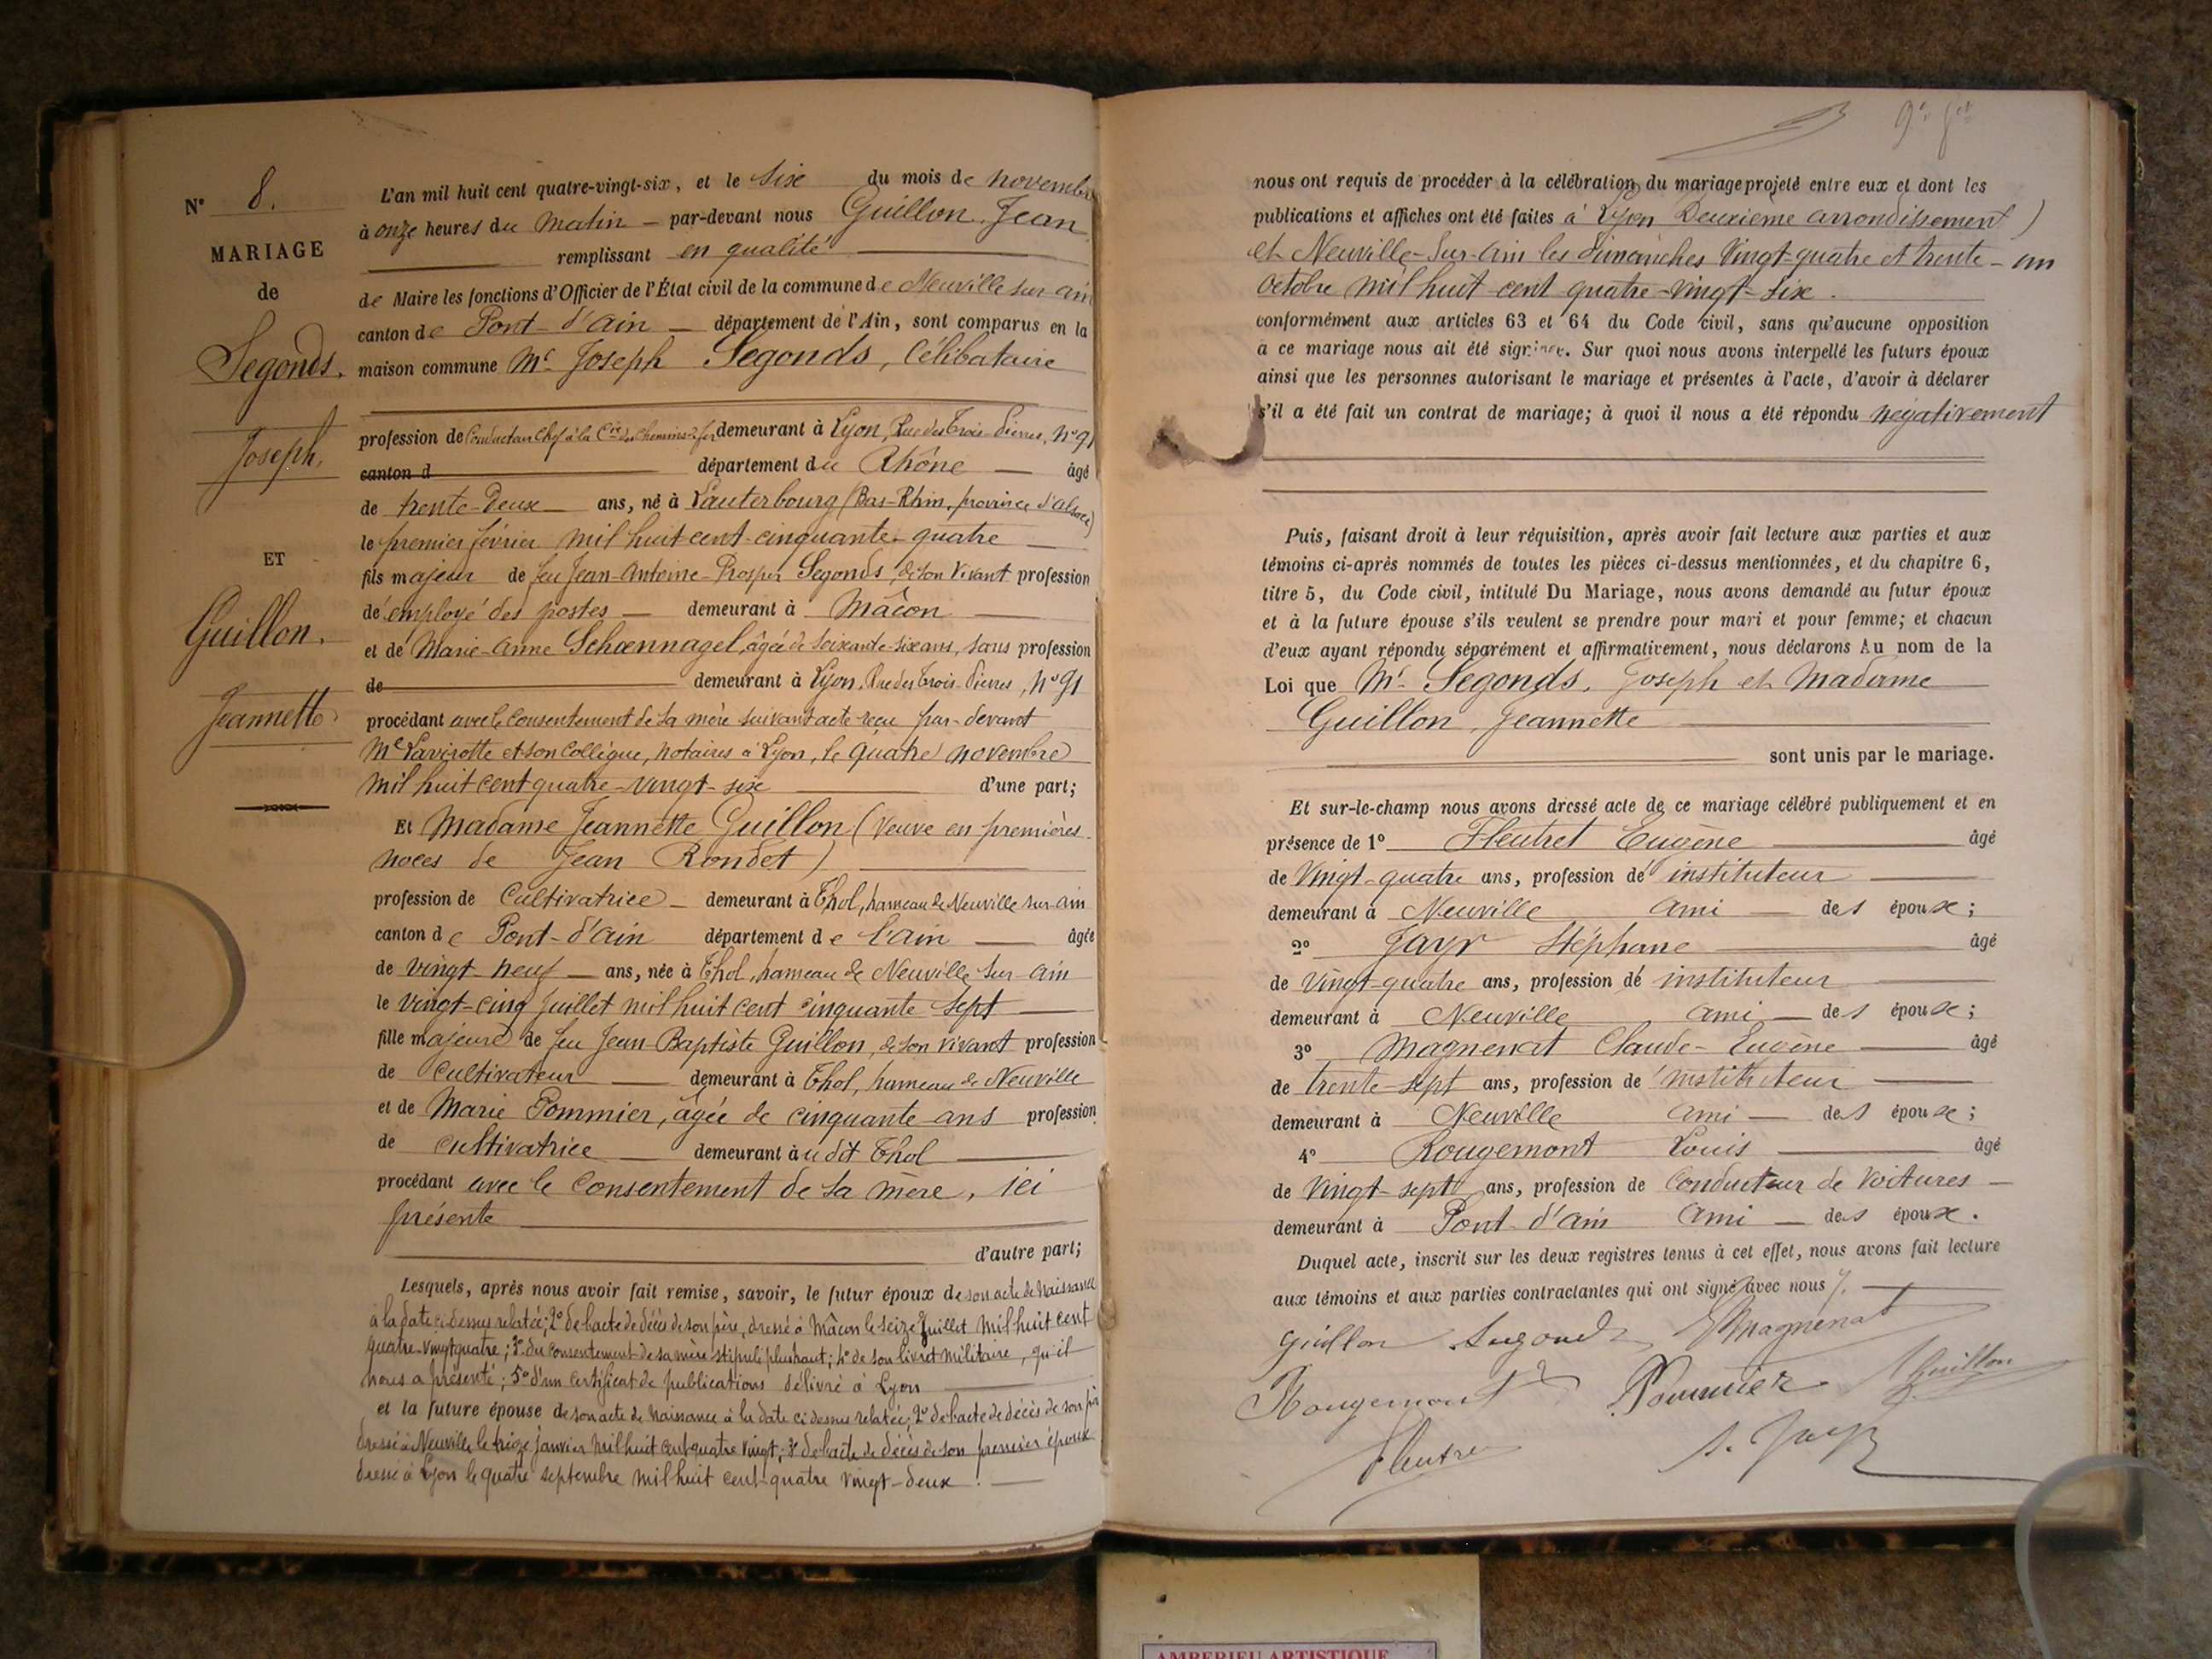 N° 8.
MARIAGE
de
Segonds.
Joseph.
ET
Guillon.
Jeannette
L'an mil huit cent quatre-vingt-six, et le six du mois de novembre
à onze heures du matin — par-devant nous Guillon Jean
remplissant en qualité
de Maire les fonctions d'Officier de l'État civil de la commune de Neuville sur ain
canton de Pont-d'ain — département de l'Ain, sont comparus en la
maison commune Mr Joseph Segonds, Célibataire
profession de Conducteur Chef à la Cie des Chemins de fer demeurant à Lyon, Rue des Trois-Pierres, N° 91
canton d département du Rhône — âgé
de trente-deux — ans, né à Lauterbourg (Bas-Rhin, province d'Alsace)
le premier février mil huit cent cinquante-quatre
fils majeur de feu Jean-Antoine-Prosper Segonds, de son vivant profession
de employé des postes — demeurant à Mâcon
et de Marie-Anne Schœnnagel, âgée de soixante-six ans, sans profession
de demeurant à Lyon, Rue des Trois-Pierres, N° 91
procédant avec le consentement de sa mère suivant acte reçu par-devant
Me Lavirotte et son Collègue, notaires à Lyon, le quatre novembre
mil huit cent quatre-vingt-six d'une part;
Et Madame Jeannette Guillon (Veuve en premières
noces de Jean Rondet)
profession de Cultivatrice — demeurant à Thol, hameau de Neuville sur ain
canton de Pont-d'ain département de l'ain — âgée
de vingt neuf — ans, née à Thol, hameau de Neuville sur ain
le vingt-cinq juillet mil huit cent cinquante sept
fille majeure de feu Jean-Baptiste Guillon, de son vivant profession
de Cultivateur — demeurant à Thol, hameau de Neuville
et de Marie Pommier, âgée de cinquante ans profession
de cultivatrice — demeurant audit Thol
procédant avec le consentement de sa mère, ici
présente
d'autre part;
Lesquels, après nous avoir fait remise, savoir, le futur époux de son acte de Naissance
à la date ci-dessus relatée; 2° de l'acte de décès de son père, dressé à Mâcon le seize Juillet mil huit cent
quatre-vingt quatre; 3° du consentement de sa mère stipulé plus haut; 4° de son livret militaire, qu'il
nous a présenté; 5° d'un certificat de publications délivré à Lyon
et la future épouse de son acte de Naissance à la date ci dessus relatée; 2° de l'acte de décès de son père
dressé à Neuville le treize janvier mil huit cent quatre vingt; 3° de l'acte de décès de son premier époux
dressé à Lyon le quatre septembre mil huit cent-quatre vingt-deux.
nous ont requis de procéder à la célébration du mariage projeté entre eux et dont les
publications et affiches ont été faites à Lyon Deuxième arrondissement)
et Neuville-Sur-Ain les dimanches Vingt-quatre et trente-un
octobre mil huit cent quatre-vingt-six.
conformément aux articles 63 et 64 du Code civil, sans qu'aucune opposition
à ce mariage nous ait été signifiée. Sur quoi nous avons interpellé les futurs époux
ainsi que les personnes autorisant le mariage et présentes à l'acte, d'avoir à déclarer
s'il a été fait un contrat de mariage; à quoi il nous a été répondu négativement
Puis, faisant droit à leur réquisition, après avoir fait lecture aux parties et aux
témoins ci-après nommés de toutes les pièces ci-dessus mentionnées, et du chapitre 6,
titre 5, du Code civil, intitulé Du Mariage, nous avons demandé au futur époux
et à la future épouse s'ils veulent se prendre pour mari et pour femme; et chacun
d'eux ayant répondu séparément et affirmativement, nous déclarons Au nom de la
Loi que Mr Segonds, Joseph et Madame
Guillon, Jeannette
sont unis par le mariage.
Et sur-le-champ nous avons dressé acte de ce mariage célébré publiquement et en
présence de 1° Fleutret Eugène âgé
de Vingt-quatre ans, profession de instituteur
demeurant à Neuville ami — des époux;
2° Jayr Stéphane âgé
de Vingt-quatre ans, profession de instituteur
demeurant à Neuville ami — des époux;
3° Magnenat Claude-Eugène âgé
de trente-sept ans, profession de instituteur
demeurant à Neuville ami — des époux;
4° Rougemont Louis âgé
de Vingt-sept ans, profession de Conducteur de Voitures —
demeurant à Pont d'ain ami — des époux.
Duquel acte, inscrit sur les deux registres tenus à cet effet, nous avons fait lecture
aux témoins et aux parties contractantes qui ont signé avec nous
Guillon Segonds Magnenat
Rougemont Pommier Guillon
Fleutret S. Jayr
AMBERIEU ARTISTIQUE